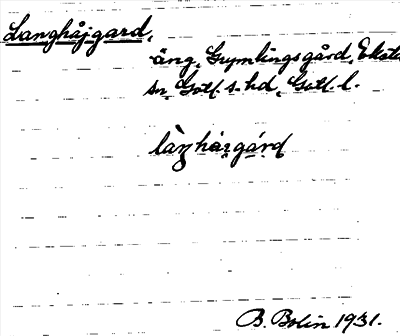 Langhåjgard,
äng, Grymlingsgård, Eksta
sn, Gotl. s. hd, Gotl. l.
làŋhåi̯gár̯d
B. Bolin 1931.